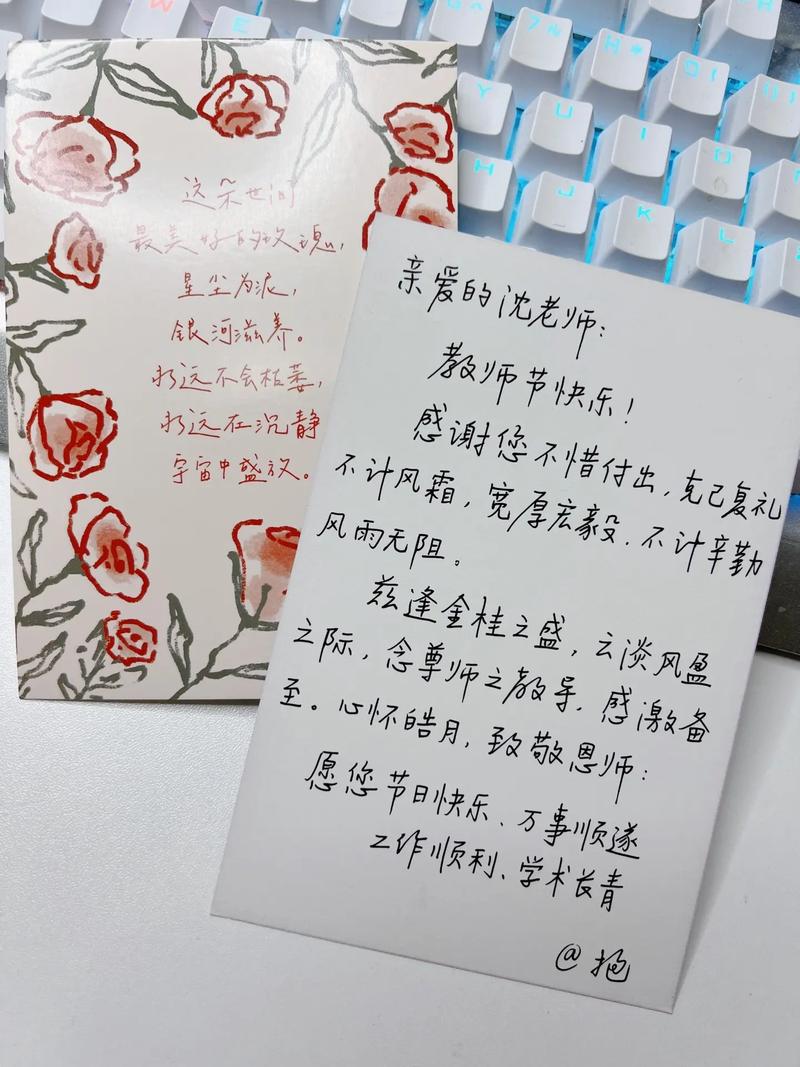 这朵世间
最美好的玫瑰,
星尘为泥,
银河滋养。
永远不会枯萎,
永远在沉静
宇宙中盛放。
亲爱的沈老师:
教师节快乐!
感谢您不惜付出,克己复礼
不计风霜,宽厚宏毅、不计辛勤
风雨无阻。
兹逢金桂之盛,云淡风盈
之际,念尊师之教导,感激备
至。心怀皓月,致敬恩师:
愿您节日快乐、万事顺遂
工作顺利、学术长青
@
W
E
Y
U
I
O
H
J
K
L